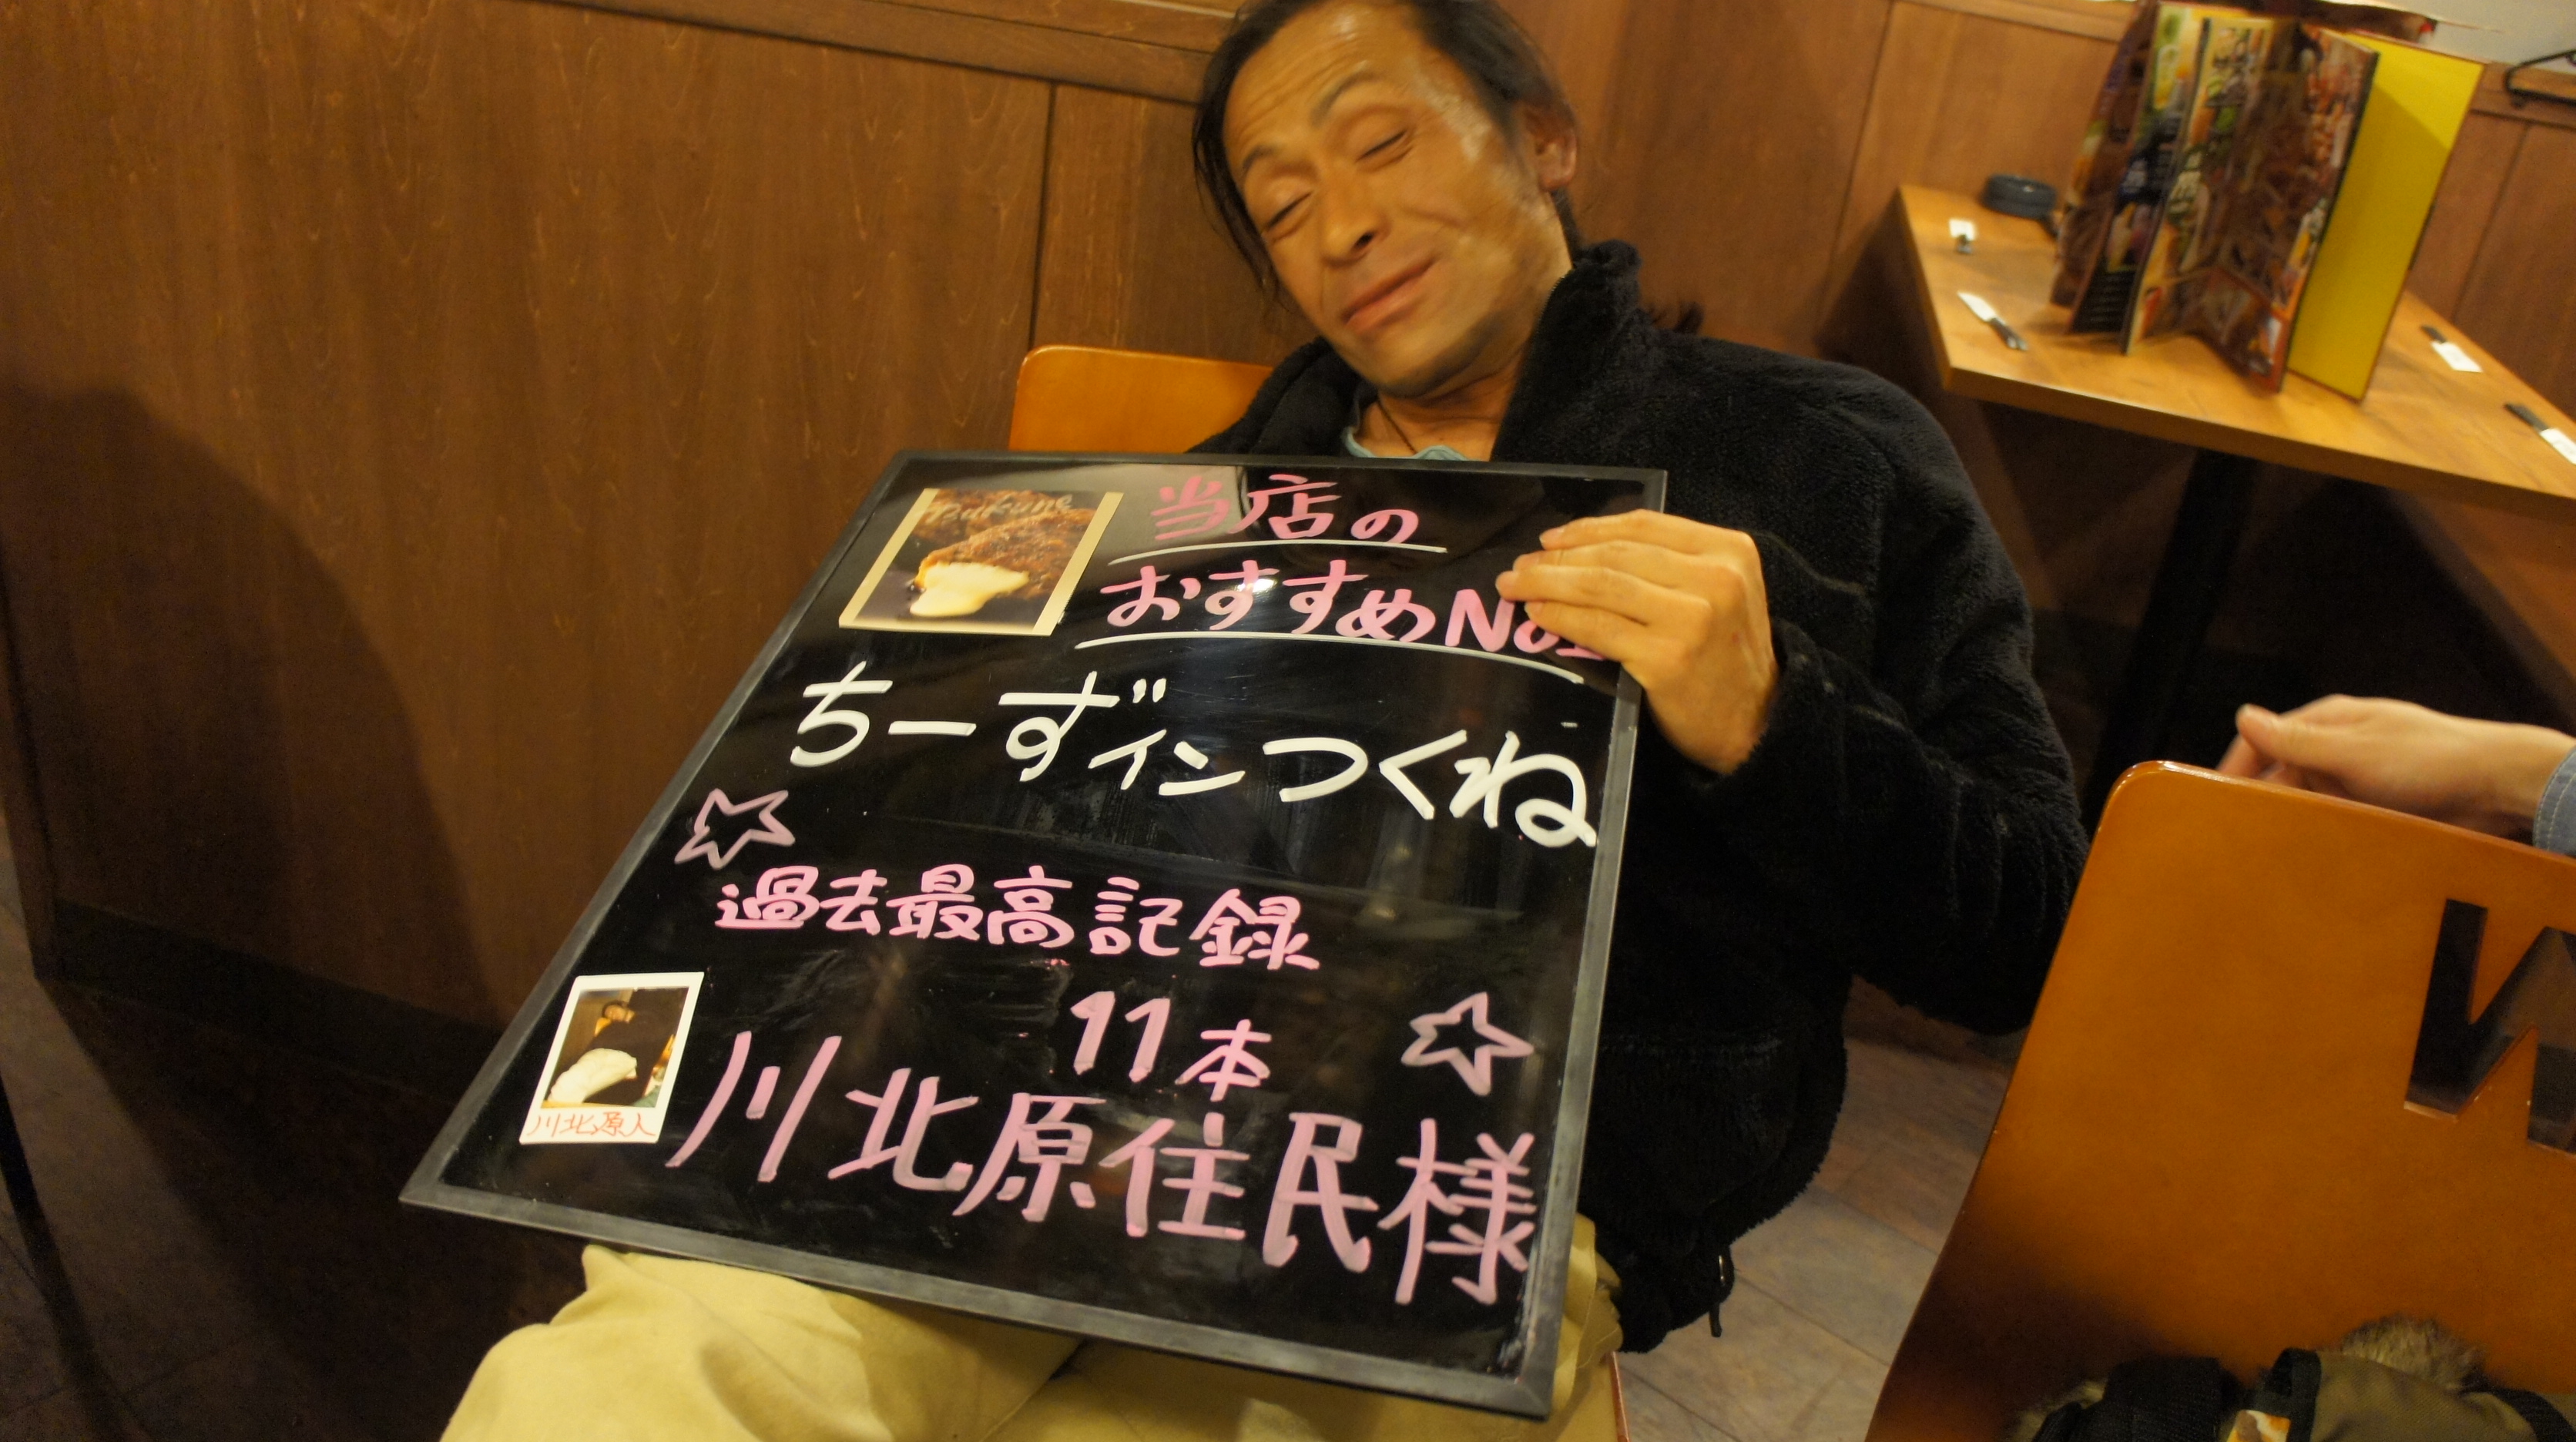 Tsukune
当店の
おすすめNo1
ちーずインつくね
過去最高記録
11本
川北原住民様
川北原人
W